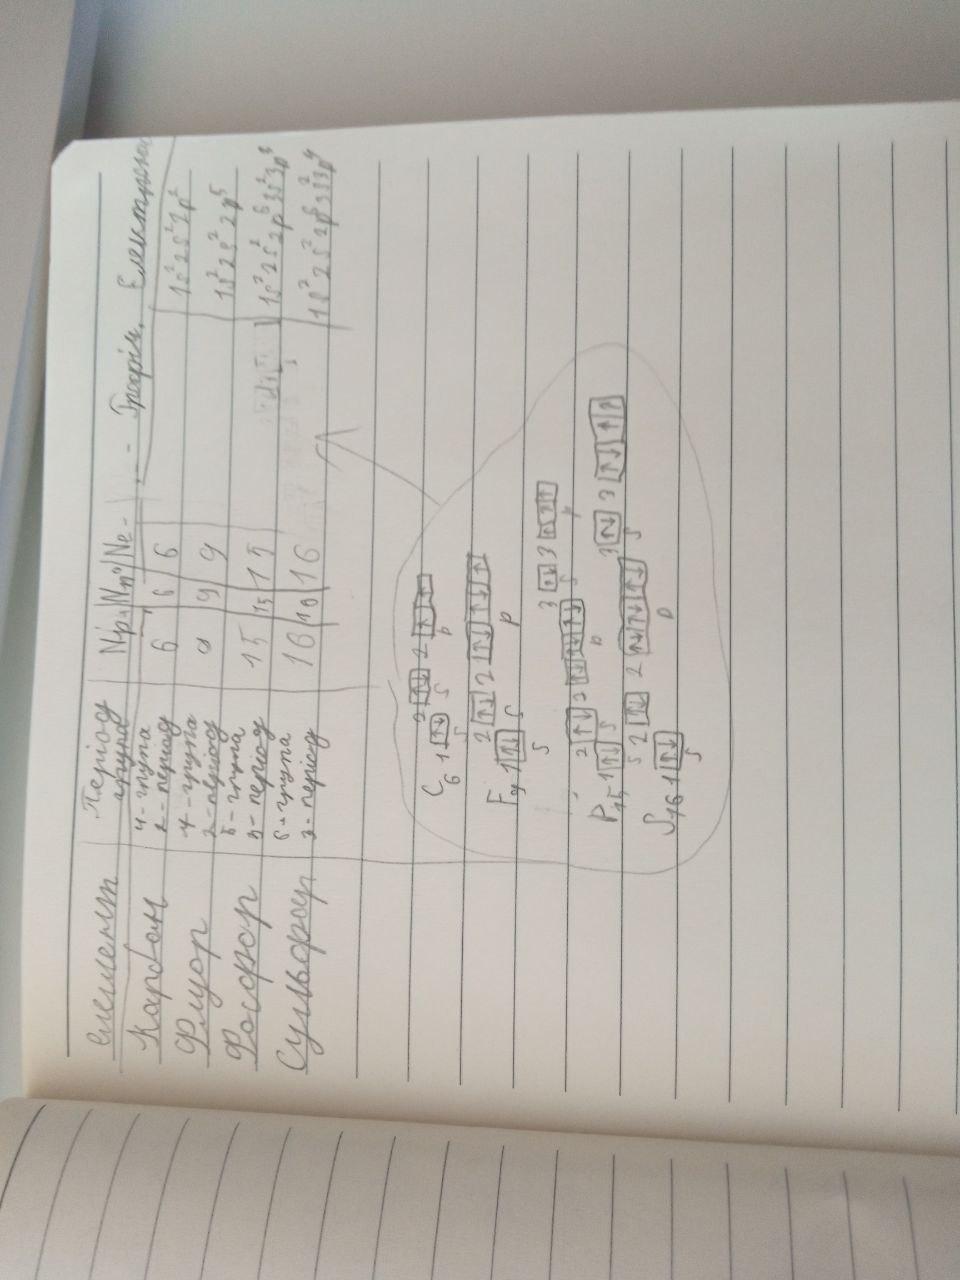 Елемент Період група Np+ Nn° Ne- Графічн. Електронна
Карбон 4-група 2-період 6 6 6 1s²2s²2p²
Флуор 7-група 2-період 9 9 9 1s²2s²2p⁵
Фосфор 5-група 3-період 15 15 15 1s²2s²2p⁶3s²3p³
Сульфур 6-група 3-період 16 16 16 1s²2s²2p⁶3s²3p⁴
C₆ 1 [↑↓] s 2 [↑↓] s 2 [↑][↑] p
F₉ 1 [↑↓] s 2 [↑↓] s 2 [↑↓][↑↓][↑] p
P₁₅ 1 [↑↓] s 2 [↑↓] s 2 [↑↓][↑↓][↑↓] p 3 [↑↓] s 3 [↑][↑][↑] p
S₁₆ 1 [↑↓] s 2 [↑↓] s 2 [↑↓][↑↓][↑↓] p 3 [↑↓] s 3 [↑↓][↑][↑]